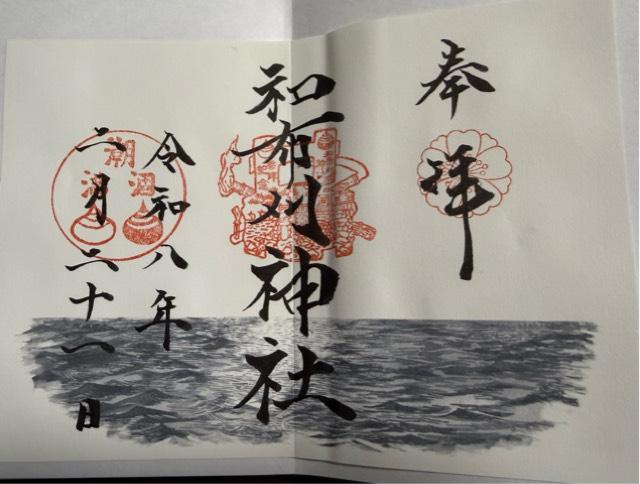 奉拝
和布刈神社
令和八年
二月二十一日
潮涸
潮満